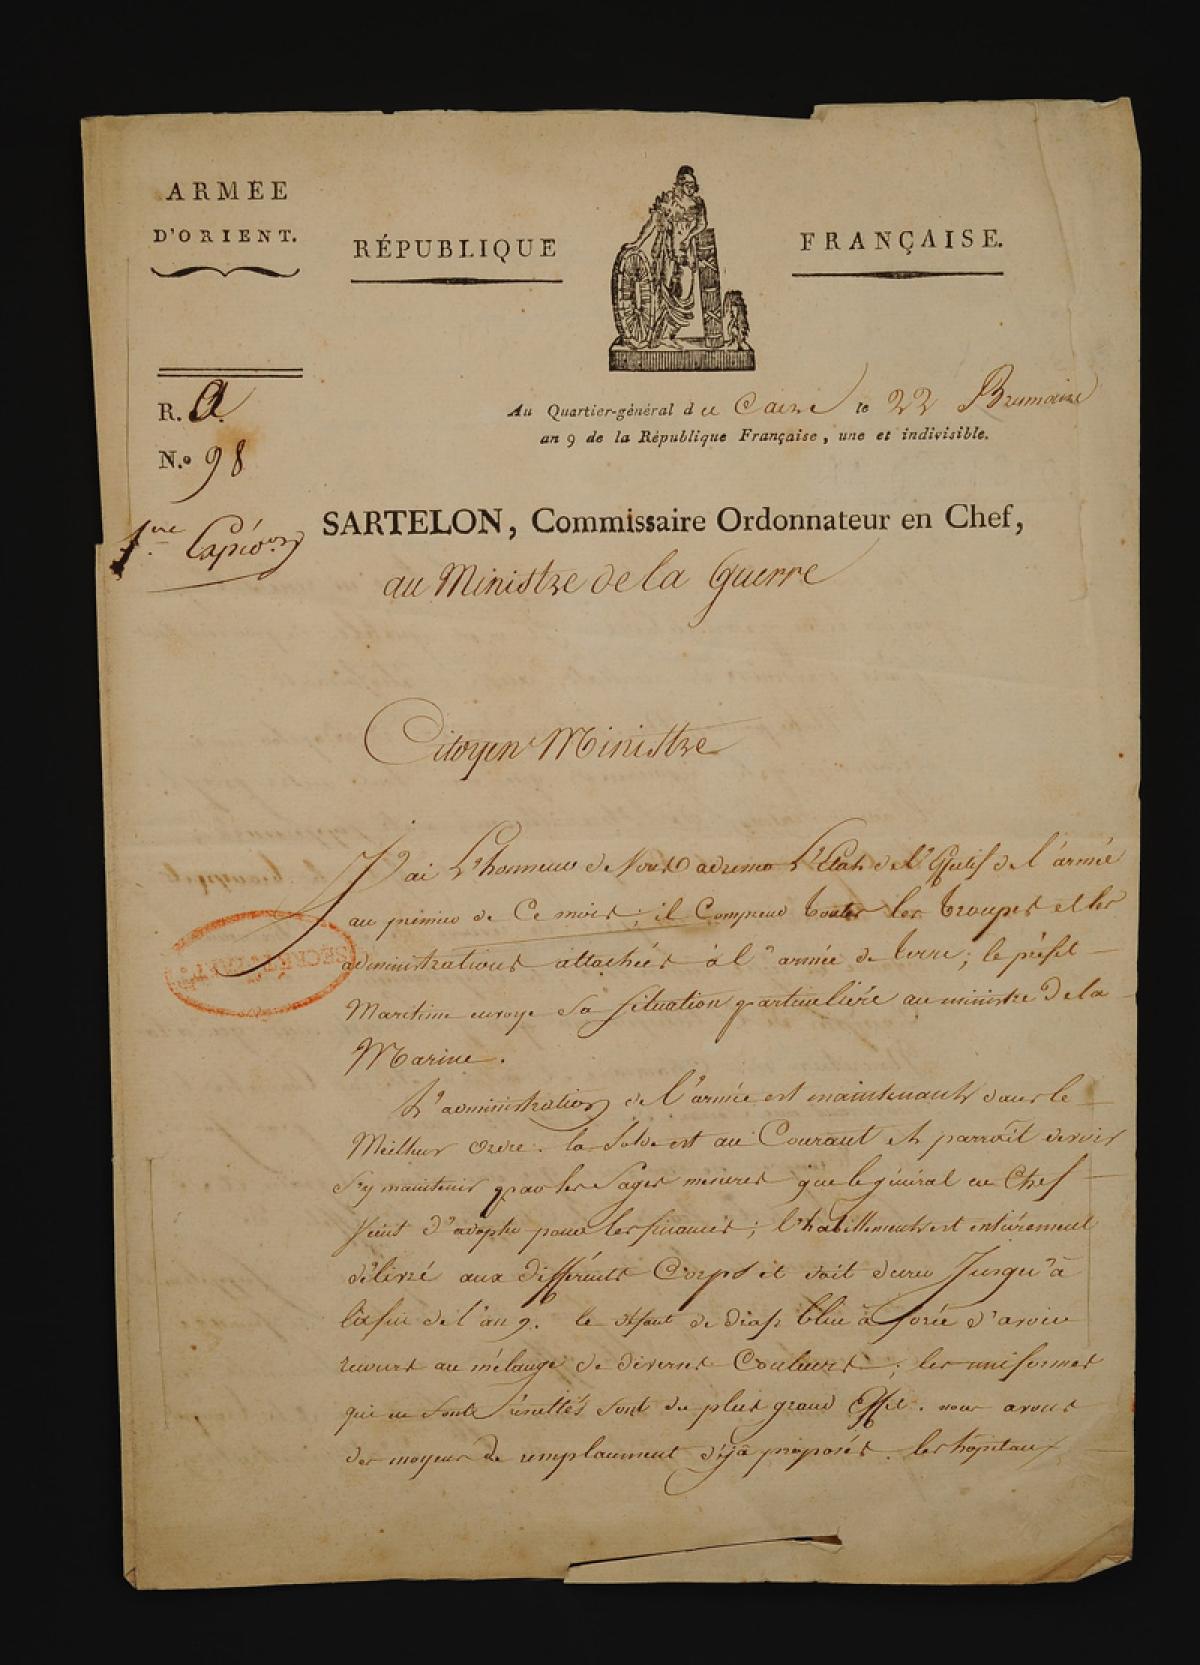 ARMÉE
D'ORIENT.
RÉPUBLIQUE FRANÇAISE.
R. A.
N.º 98
Au Quartier-général du Caire le 22 Brumaire
an 9 de la République Française, une et indivisible.
1.ere
SARTELON, Commissaire Ordonnateur en Chef,
au Ministre de la Guerre
Citoyen Ministre
J'ai L'honneur de Vous adresser L'Etat de l'Effectif de l'armée
au premier de Ce mois; il Comprend toutes les troupes et les
administrations attachées à l'armée de terre; le préfet
Maritime envoye sa situation particulière au ministre de la
Marine.
L'administration de l'armée est maintenant dans le
Meilleur ordre. la Solde est au Courant et parroît devoir
s'y maintenir par les Sages mesures que le général en Chef
vient d'adopter pour les finances; l'habillement est entièrement
délivré aux différents Corps et doit durer Jusqu'à
la fin de l'an 9. le défaut de drap bleu a forcé d'avoir
recours au mélange de diverses Couleurs; les uniformes
qui en sont résultés sont du plus grand Effet. nous avons
des moyens de remplacement déjà préposés. les hôpitaux